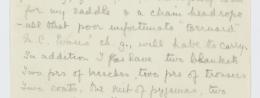 for my saddle & a chain head rope
- all that poor unfortunate "
N.C. ch. g., will have to carry.
In addition I have two blankets
two prs of breeches, two prs of trousers
two coats, one suit of pyjamas, two